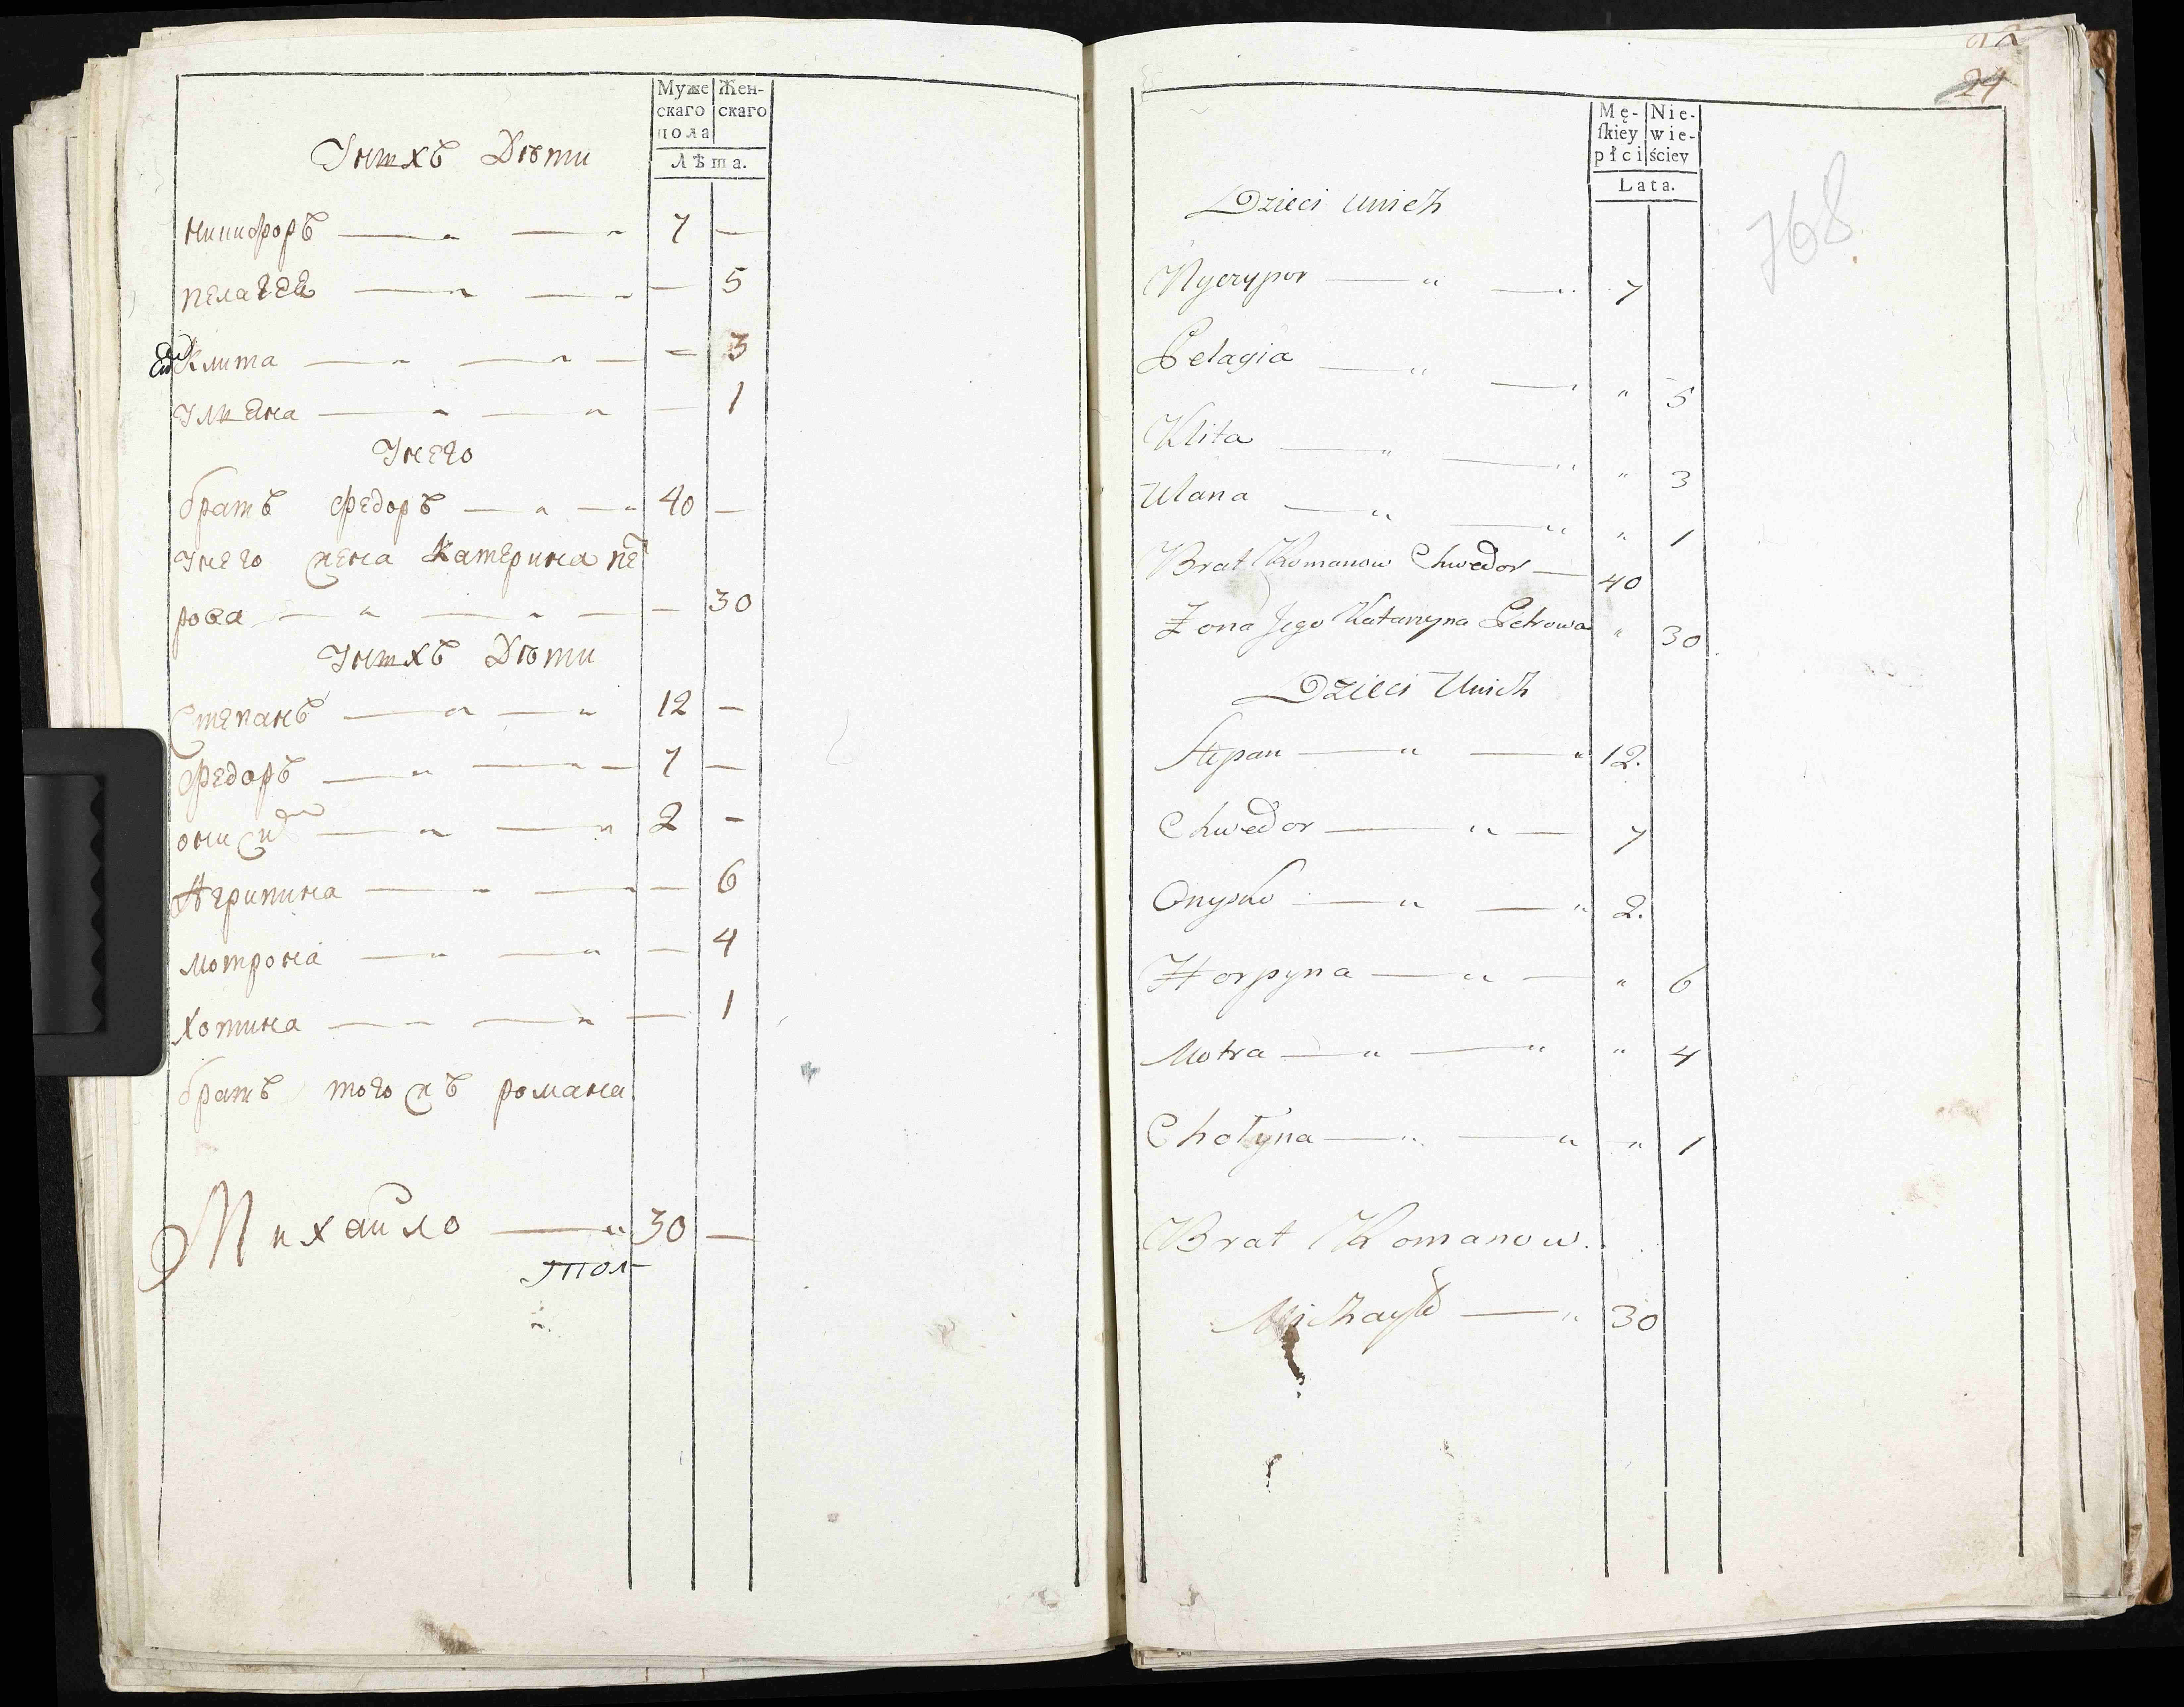 Муже Жен-
скаго скаго
пола
Лѣта.
Унихъ Дѣти
Ничифоръ 7 —
пелагея — 5
Клита — 3
Улияна — 1
Унего
братъ Федоръ 40 —
Унего жена Катерина пе
рова — 30
Унихъ Дѣти
Степанъ 12 —
Федоръ 7 —
Агрипина — 6
мотрона — 4
хотина — 1
братъ тогожъ романа
Михайло 30 —
24
Mę- Nie-
ſkiey wie-
płci ściey
Lata.
768
Dzieci unich
Nyczypor 7
Pelagia " 5
Klita " 3
Ulana " 1
Brat Romanow Chwedor 40
Żona Jego Katarzyna Petrowa " 30
Dzieci Unich
Stepan 12.
Chwedor 7
Onysko 2.
Horpyna " 6
Motra " 4
Chotyna " 1
Brat Romanow.
Michayło 30